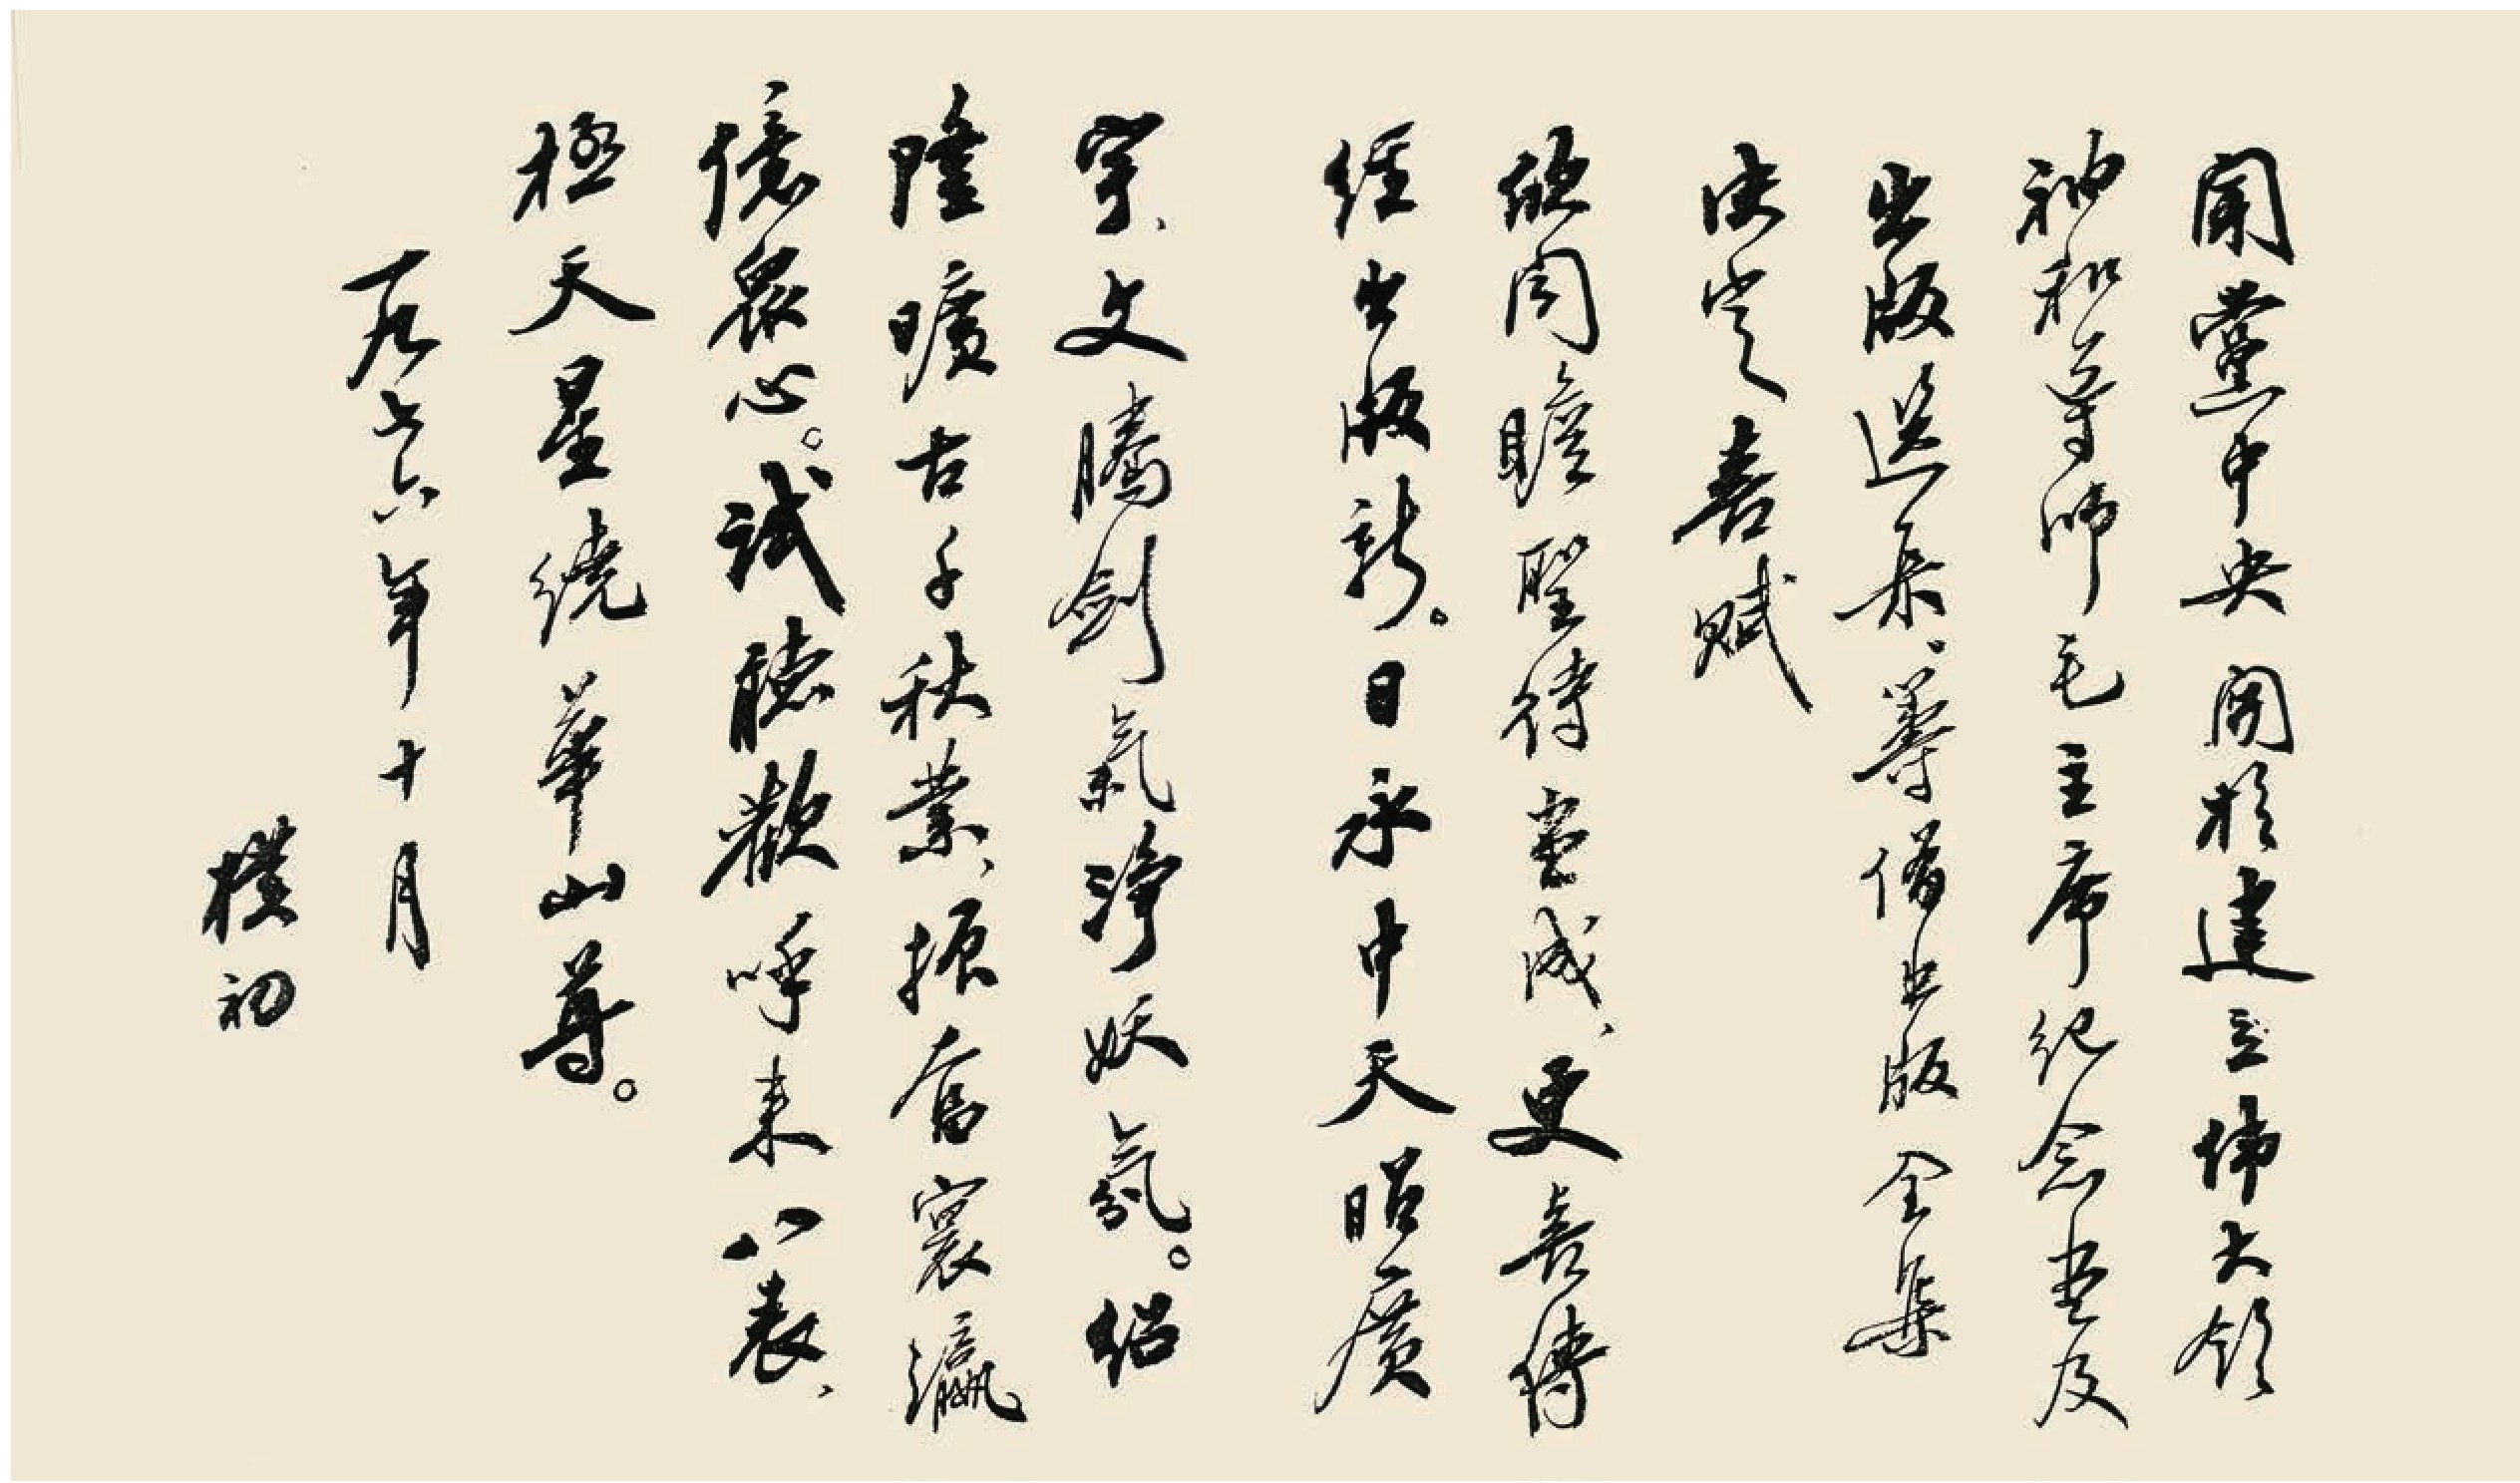 聞黨中央關於建立偉大領
袖和導師毛主席紀念堂及
出版選集、籌備出版全集
决定喜賦
欣聞瞻聖待堂成、更喜傳
經出版新。日永中天昭廣
宇、文騰劍氣淨妖氛。紹
隆曠古千秋業、振奮寰瀛
億衆心。試聽歡呼來八表、
極天星繞華山尊。
一九七六年十月
樸初